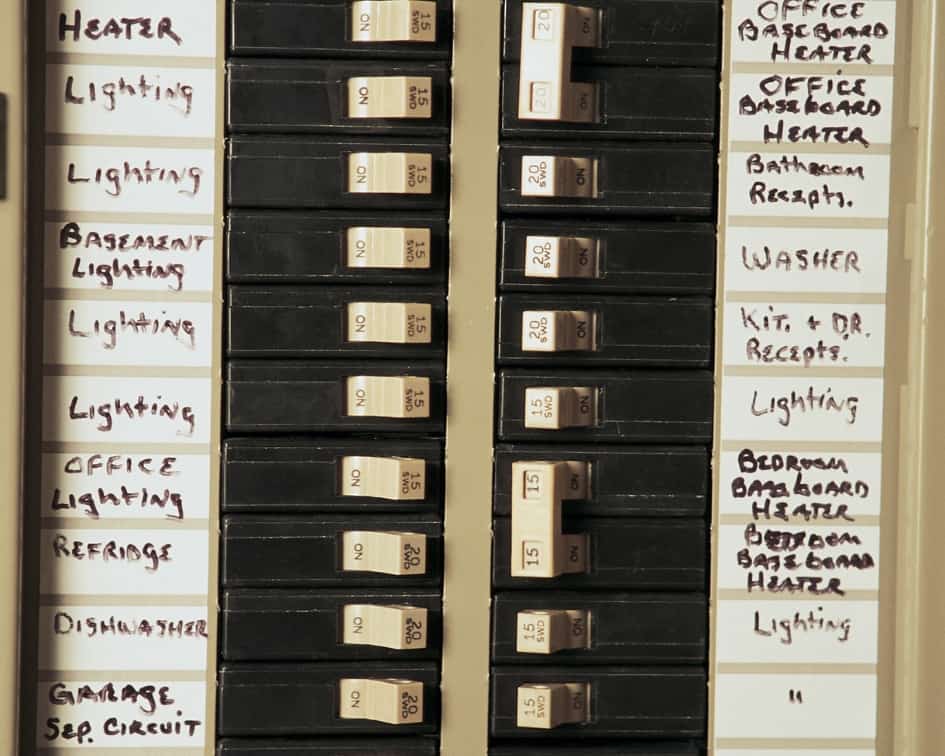 HEATER
Lighting
Lighting
BASEMENT
Lighting
Lighting
Lighting
OFFICE
Lighting
REFRIDGE
DISHWASHER
GARAGE
Sep. CIRCUIT
ON 15 SWD
ON 15 SWD
ON 15 SWD
ON 15 SWD
ON 15 SWD
ON 15 SWD
ON 15 SWD
ON 20 SWD
ON 20 SWD
ON 20 SWD
20 ON
20 ON
20 SWD ON
20 SWD ON
20 SWD ON
15 SWD ON
15 ON
15 ON
15 SWD ON
15 SWD ON
OFFICE
BASEBOARD
HEATER
OFFICE
BASEBOARD
HEATER
Bathroom
Recepts.
WASHER
KIT. + DR.
RECEPTS.
Lighting
BEDROOM
BASEBOARD
HEATER
BEDROOM
BASEBOARD
HEATER
Lighting
"